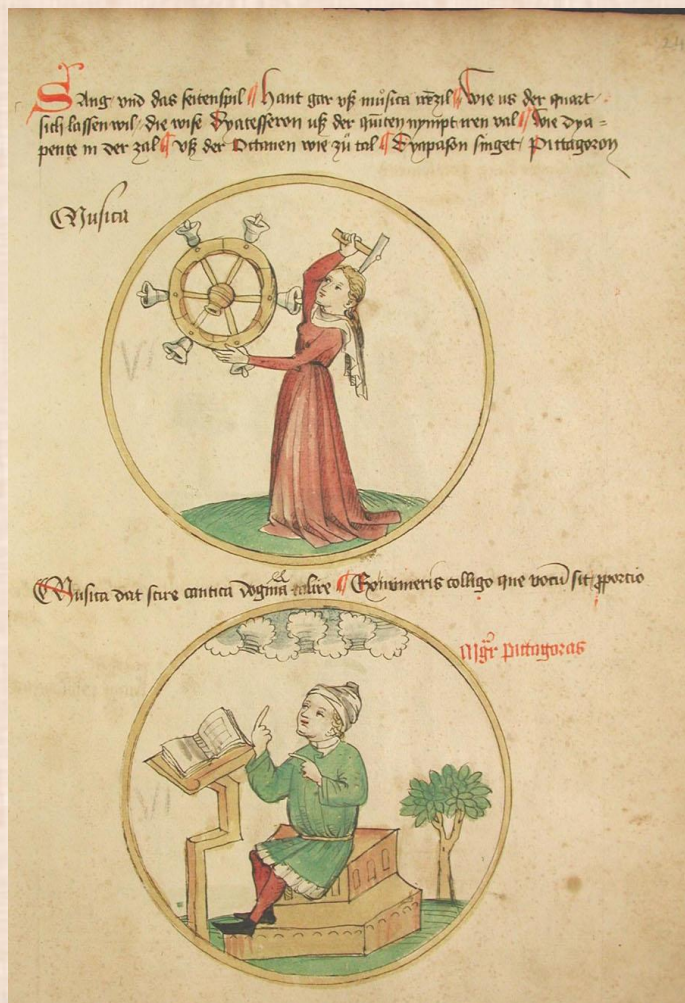 Sang vnd das seitenspil Hant gar vß můsica zil Wie vs der quart
sich lassen wil die wise Dyatesseron vß der quiten nympt iren val Wie dya=
pente in der zal vß der Octauen wie zů tal Dyapason singet Pittagoron
Musica
Musica dat scire cantica dogma Ex numeris colligo que vocū sit ꝓporcio
Mgr̄ pittagoras